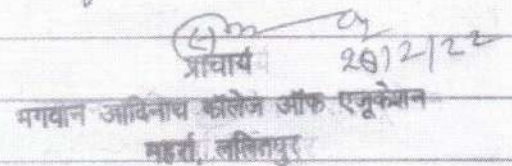 प्राचार्य 28/2/22
भगवान आदिनाथ कॉलेज ऑफ एजूकेशन
महर्रा, ललितपुर